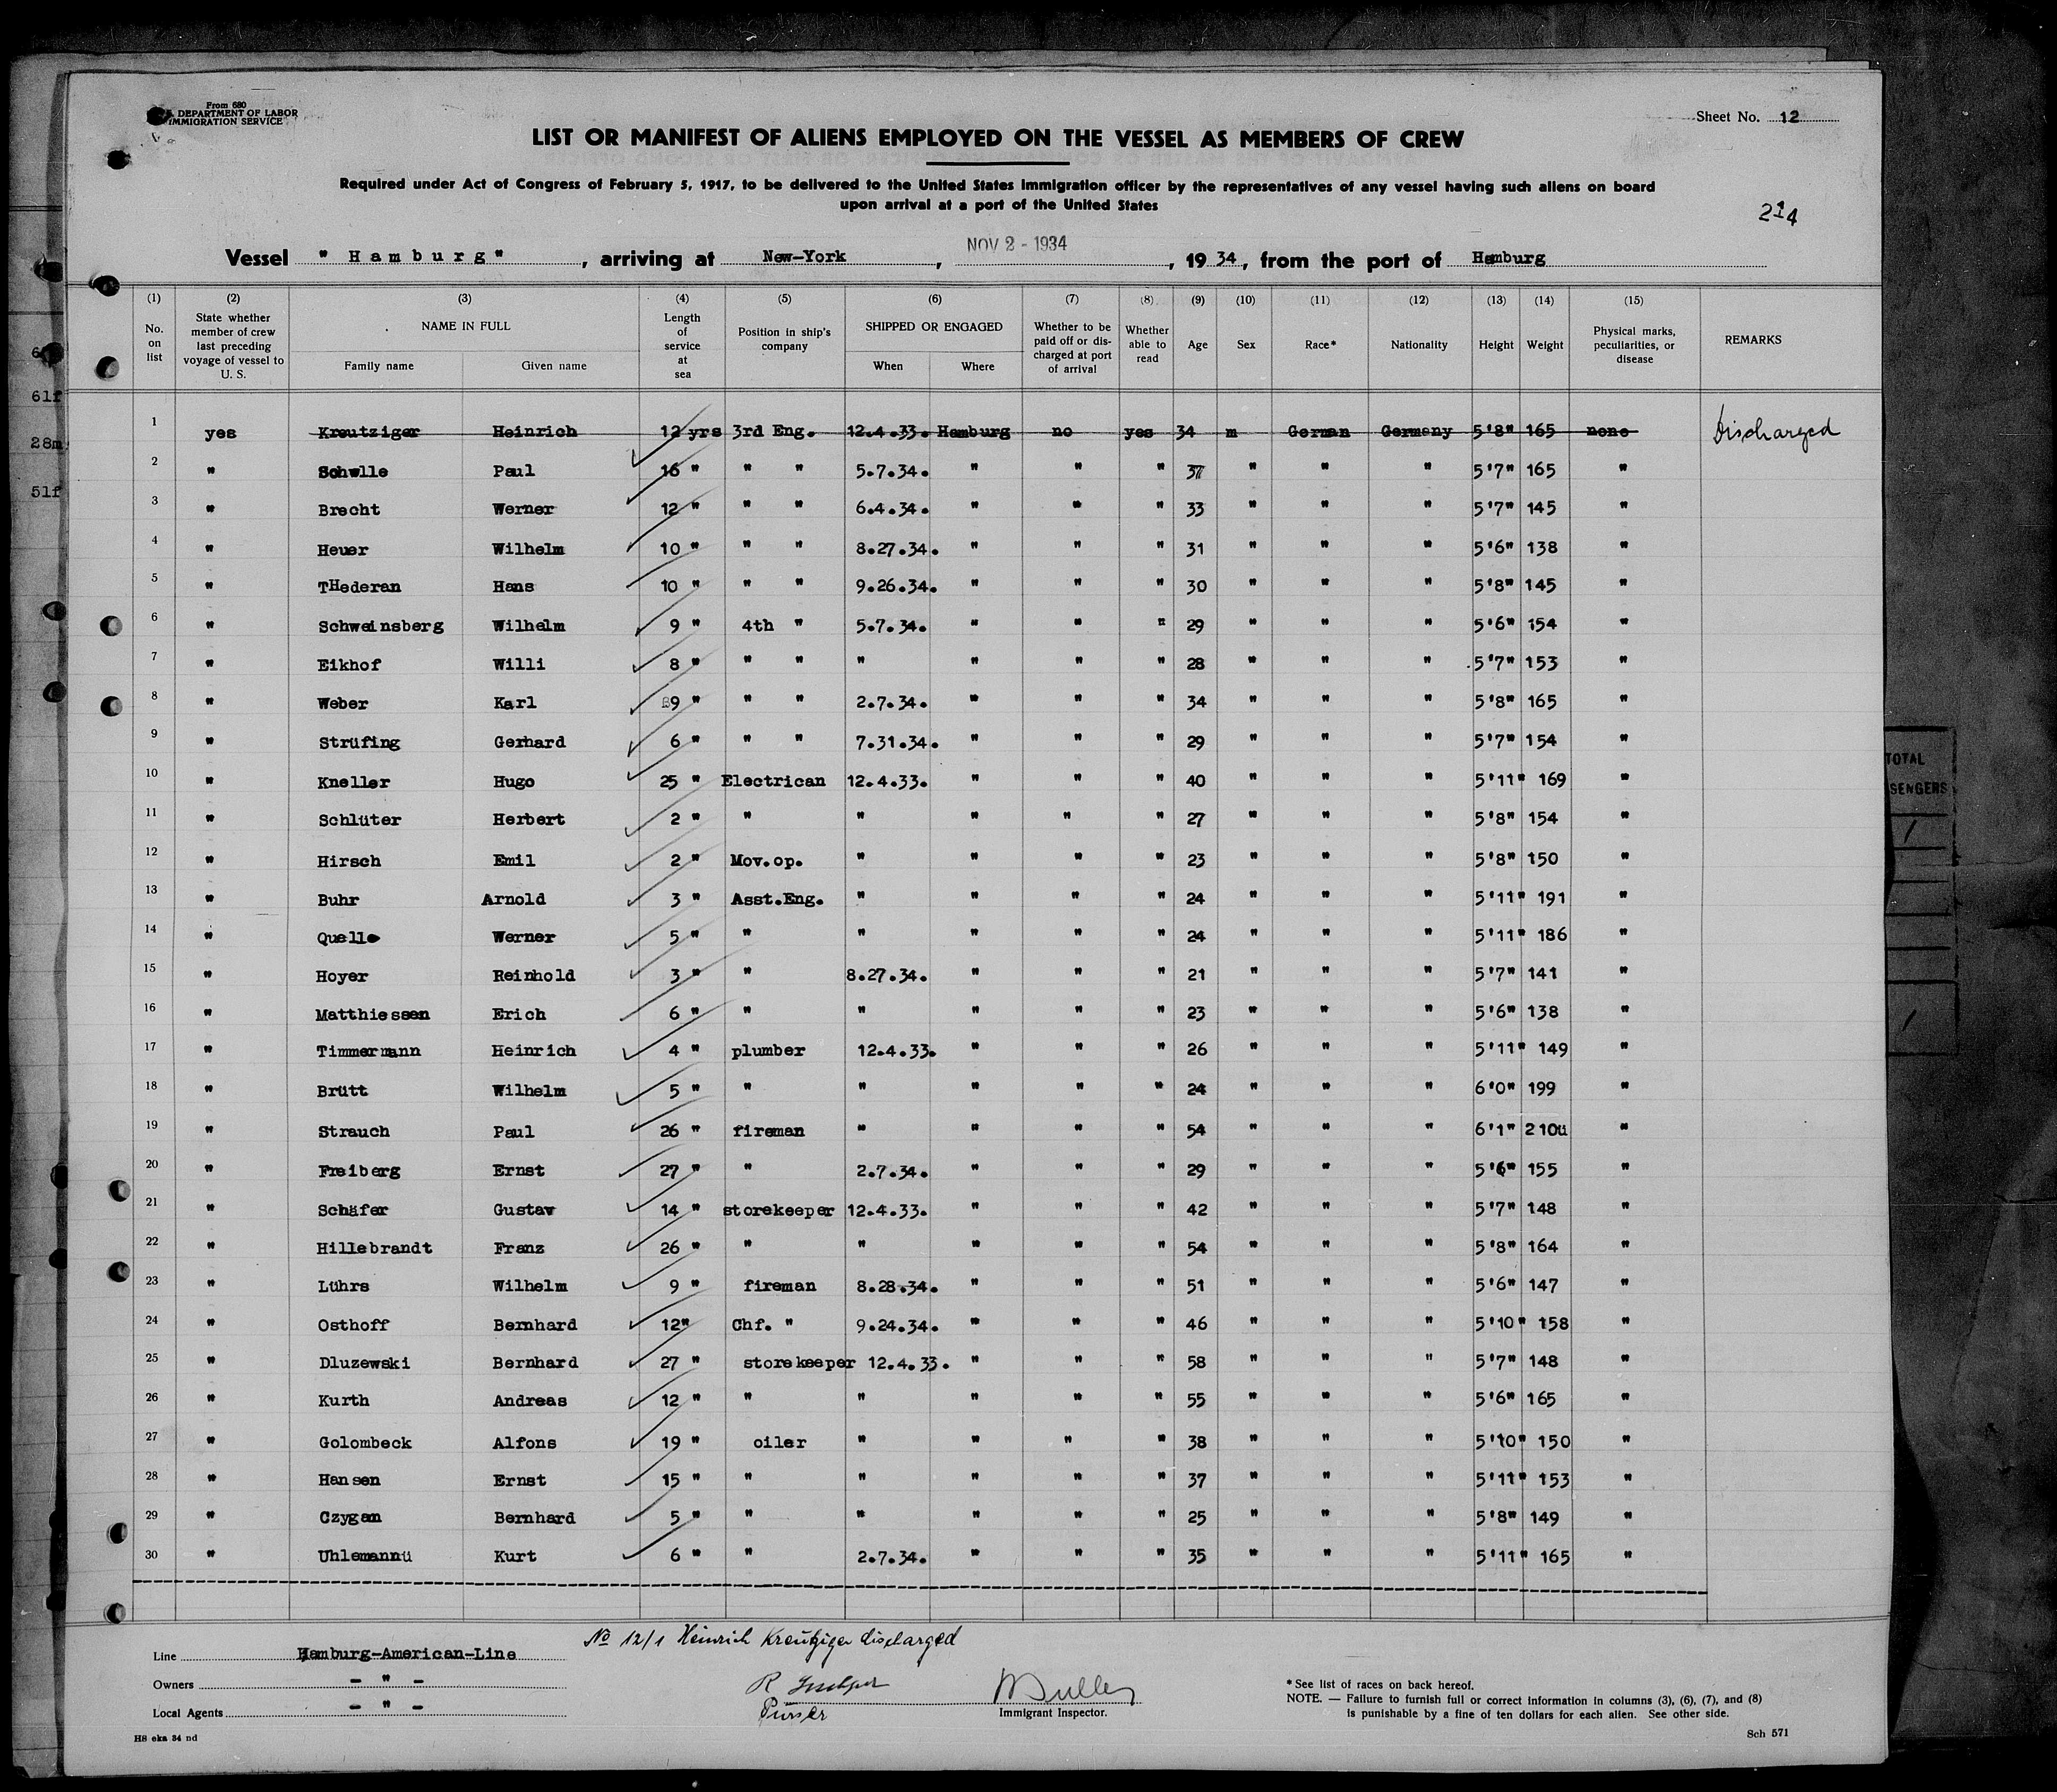 From 680
DEPARTMENT OF LABOR
IMMIGRATION SERVICE
Sheet No. 12
LIST OR MANIFEST OF ALIENS EMPLOYED ON THE VESSEL AS MEMBERS OF CREW
Required under Act of Congress of February 5, 1917, to be delivered to the United States immigration officer by the representatives of any vessel having such aliens on board
upon arrival at a port of the United States
214
Vessel "Hamburg", arriving at New-York, NOV 2 - 1934, 1934, from the port of Hamburg
(1) (2) (3) (4) (5) (6) (7) (8) (9) (10) (11) (12) (13) (14) (15)
No. on list State whether member of crew last preceding voyage of vessel to U. S. NAME IN FULL Family name Given name Length of service at sea Position in ship's company SHIPPED OR ENGAGED When Where Whether to be paid off or discharged at port of arrival Whether able to read Age Sex Race* Nationality Height Weight Physical marks, peculiarities, or disease REMARKS
1 yes Kreutziger Heinrich 12 yrs 3rd Eng. 12.4.33. Hamburg no yes 34 m German Germany 5'8" 165 none Discharged
2 " Schwlle Paul 16 " " " 5.7.34. " " " 37 " " " 5'7" 165 "
3 " Brecht Werner 12 " " " 6.4.34. " " " 33 " " " 5'7" 145 "
4 " Heuer Wilhelm 10 " " " 8.27.34. " " " 31 " " " 5'6" 138 "
5 " THederan Hans 10 " " " 9.26.34. " " " 30 " " " 5'8" 145 "
6 " Schweinsberg Wilhelm 9 " 4th " 5.7.34. " " " 29 " " " 5'6" 154 "
7 " Eikhof Willi 8 " " " " " " " 28 " " " 5'7" 153 "
8 " Weber Karl 9 " " " 2.7.34. " " " 34 " " " 5'8" 165 "
9 " Strüfing Gerhard 6 " " " 7.31.34. " " " 29 " " " 5'7" 154 "
10 " Kneller Hugo 25 " Electrican 12.4.33. " " " 40 " " " 5'11" 169 "
11 " Schlüter Herbert 2 " " " " " " 27 " " " 5'8" 154 "
12 " Hirsch Emil 2 " Mov.op. " " " " 23 " " " 5'8" 150 "
13 " Buhr Arnold 3 " Asst.Eng. " " " " 24 " " " 5'11" 191 "
14 " Quelle Werner 5 " " " " " " 24 " " " 5'11" 186 "
15 " Hoyer Reinhold 3 " " 8.27.34. " " " 21 " " " 5'7" 141 "
16 " Matthiessen Erich 6 " " " " " " 23 " " " 5'6" 138 "
17 " Timmermann Heinrich 4 " plumber 12.4.33. " " " 26 " " " 5'11" 149 "
18 " Brütt Wilhelm 5 " " " " " " 24 " " " 6'0" 199 "
19 " Strauch Paul 26 " fireman " " " " 54 " " " 6'1" 210ü "
20 " Freiberg Ernst 27 " " 2.7.34. " " " 29 " " " 5'6" 155 "
21 " Schäfer Gustav 14 " storekeeper 12.4.33. " " " 42 " " " 5'7" 148 "
22 " Hillebrandt Franz 26 " " " " " " 54 " " " 5'8" 164 "
23 " Lührs Wilhelm 9 " fireman 8.28.34. " " " 51 " " " 5'6" 147 "
24 " Osthoff Bernhard 12" Chf. " 9.24.34. " " " 46 " " " 5'10" 158 "
25 " Dluzewski Bernhard 27 " storekeeper 12.4.33. " " " 58 " " " 5'7" 148 "
26 " Kurth Andreas 12 " " " " " " 55 " " " 5'6" 165 "
27 " Golombeck Alfons 19 " oiler " " " " 38 " " " 5'10" 150 "
28 " Hansen Ernst 15 " " " " " " 37 " " " 5'11" 153 "
29 " Czygan Bernhard 5 " " " " " " 25 " " " 5'8" 149 "
30 " Uhlemannü Kurt 6 " " 2.7.34. " " " 35 " " " 5'11" 165 "
No 12/1 Heinrich Kreutziger discharged
Line Hamburg-American-Line
Owners - " -
Local Agents - " -
Purser
Immigrant Inspector.
* See list of races on back hereof.
NOTE. — Failure to furnish full or correct information in columns (3), (6), (7), and (8)
is punishable by a fine of ten dollars for each alien. See other side.
HS eka 34 nd
Sch 571
61f
28m
51f
TOTAL
SENGERS